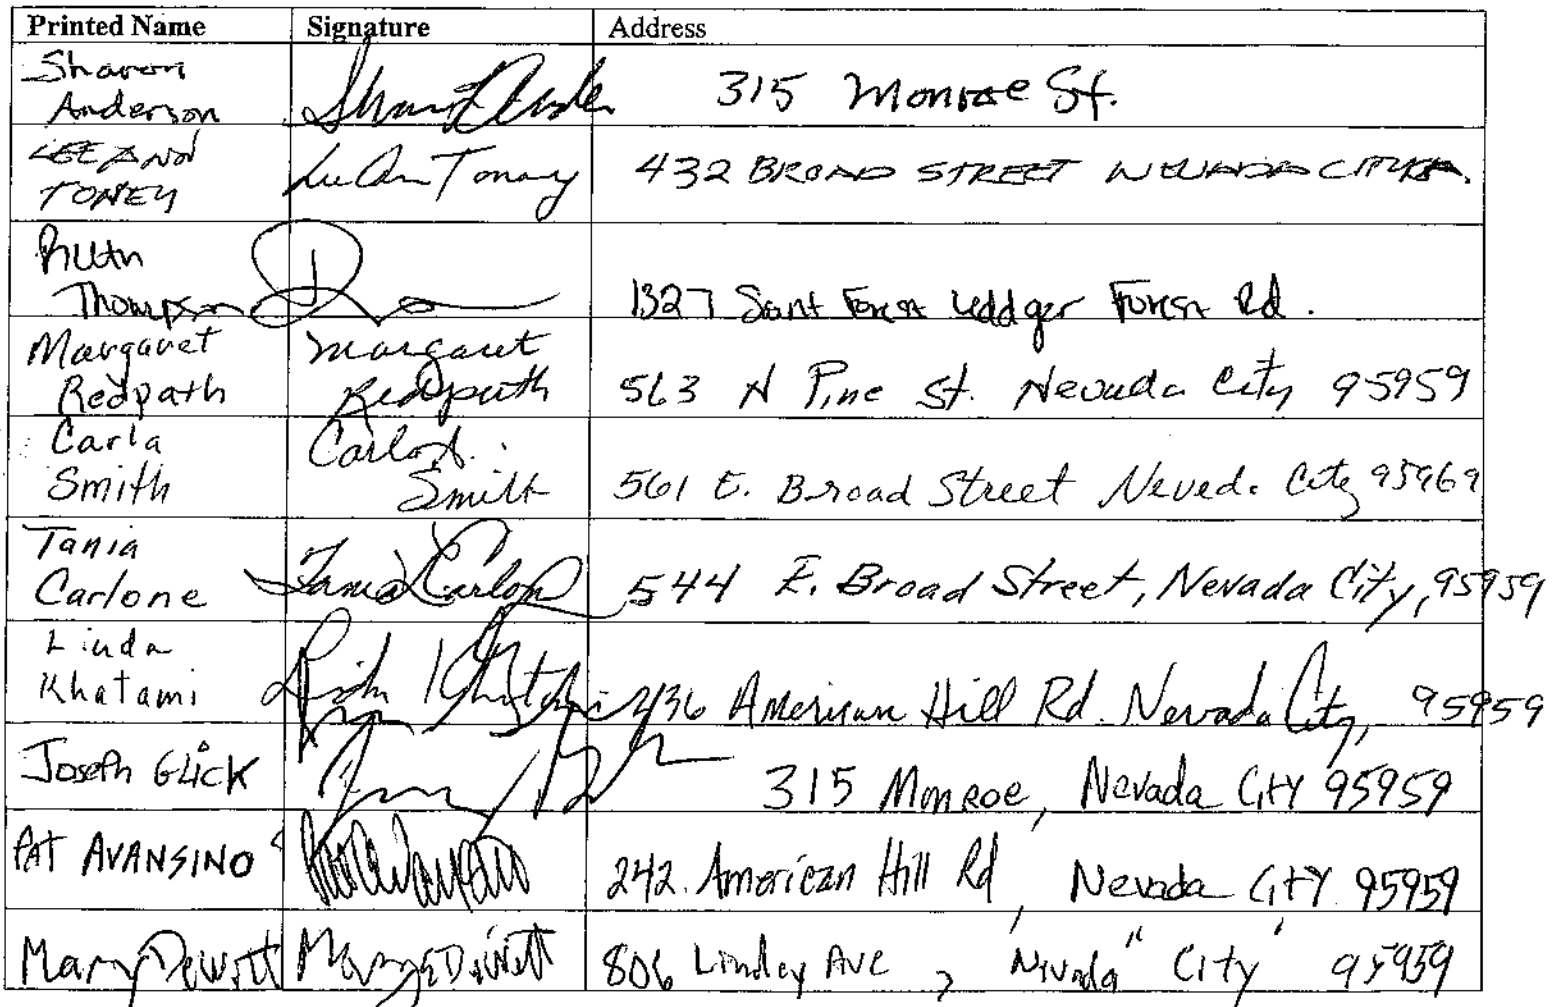 Printed Name Signature Address
Sharon
Anderson 315 Monroe St.
LEE ANN
TONEY 432 BROAD STREET NEVADA CITY
Ruth
Thompson 1327 Forest Rd.
Margaret Margaret
Redpath Redpath 563 N Pine St. Nevada City 95959
Carla Carla
Smith Smith 561 E. Broad Street Nevada City 95969
Tania
Carlone Tania Carlone 544 E. Broad Street, Nevada City, 95959
Linda
Khatami Linda Khatami 436 American Hill Rd. Nevada City, 95959
Joseph Glick 315 Monroe, Nevada City 95959
PAT AVANSINO 242 American Hill Rd, Nevada City 95959
Mary DeWitt Mary DeWitt 806 Lindley Ave, "Nevada" City 95959